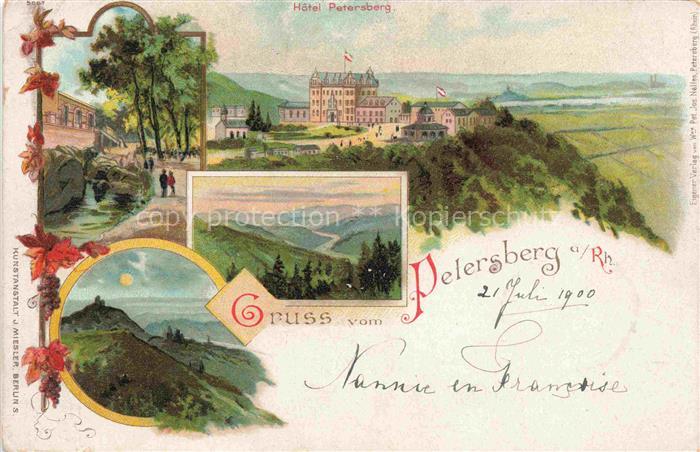 5667
Hôtel Petersberg.
copy protection ** Kopierschutz
Gruss vom Petersberg a/Rh.
21 Juli 1900
Nannie en Françoise
KUNSTANSTALT J. MIESLER, BERLIN S.
Eigener Verlag von Wwe Pet. Jos. Nelles, Petersberg (Rhein)